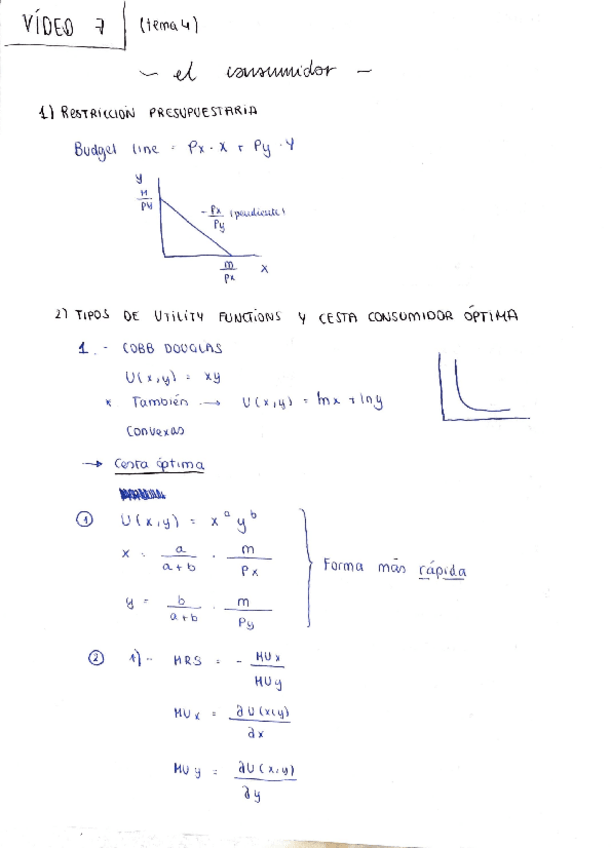 VÍDEO 7 (tema 4)
~ el consumidor ~
1) RESTRICCIÓN PRESUPUESTARIA
Budget line = Px · X + Py · Y
y
M/Py
- Px/Py (pendiente)
m/Px X
2) TIPOS DE UTILITY FUNCTIONS Y CESTA CONSUMIDOR ÓPTIMA
1.- COBB DOUGLAS
U(x,y) = xy
* También → U(x,y) = lnx + lny
Convexas
→ Cesta óptima
① U(x,y) = x^a y^b
x = a/(a+b) · m/Px
Forma más rápida
y = b/(a+b) · m/Py
② 1).- MRS = - MUx/MUy
MUx = ∂U(x,y)/∂x
MUy = ∂U(x,y)/∂y